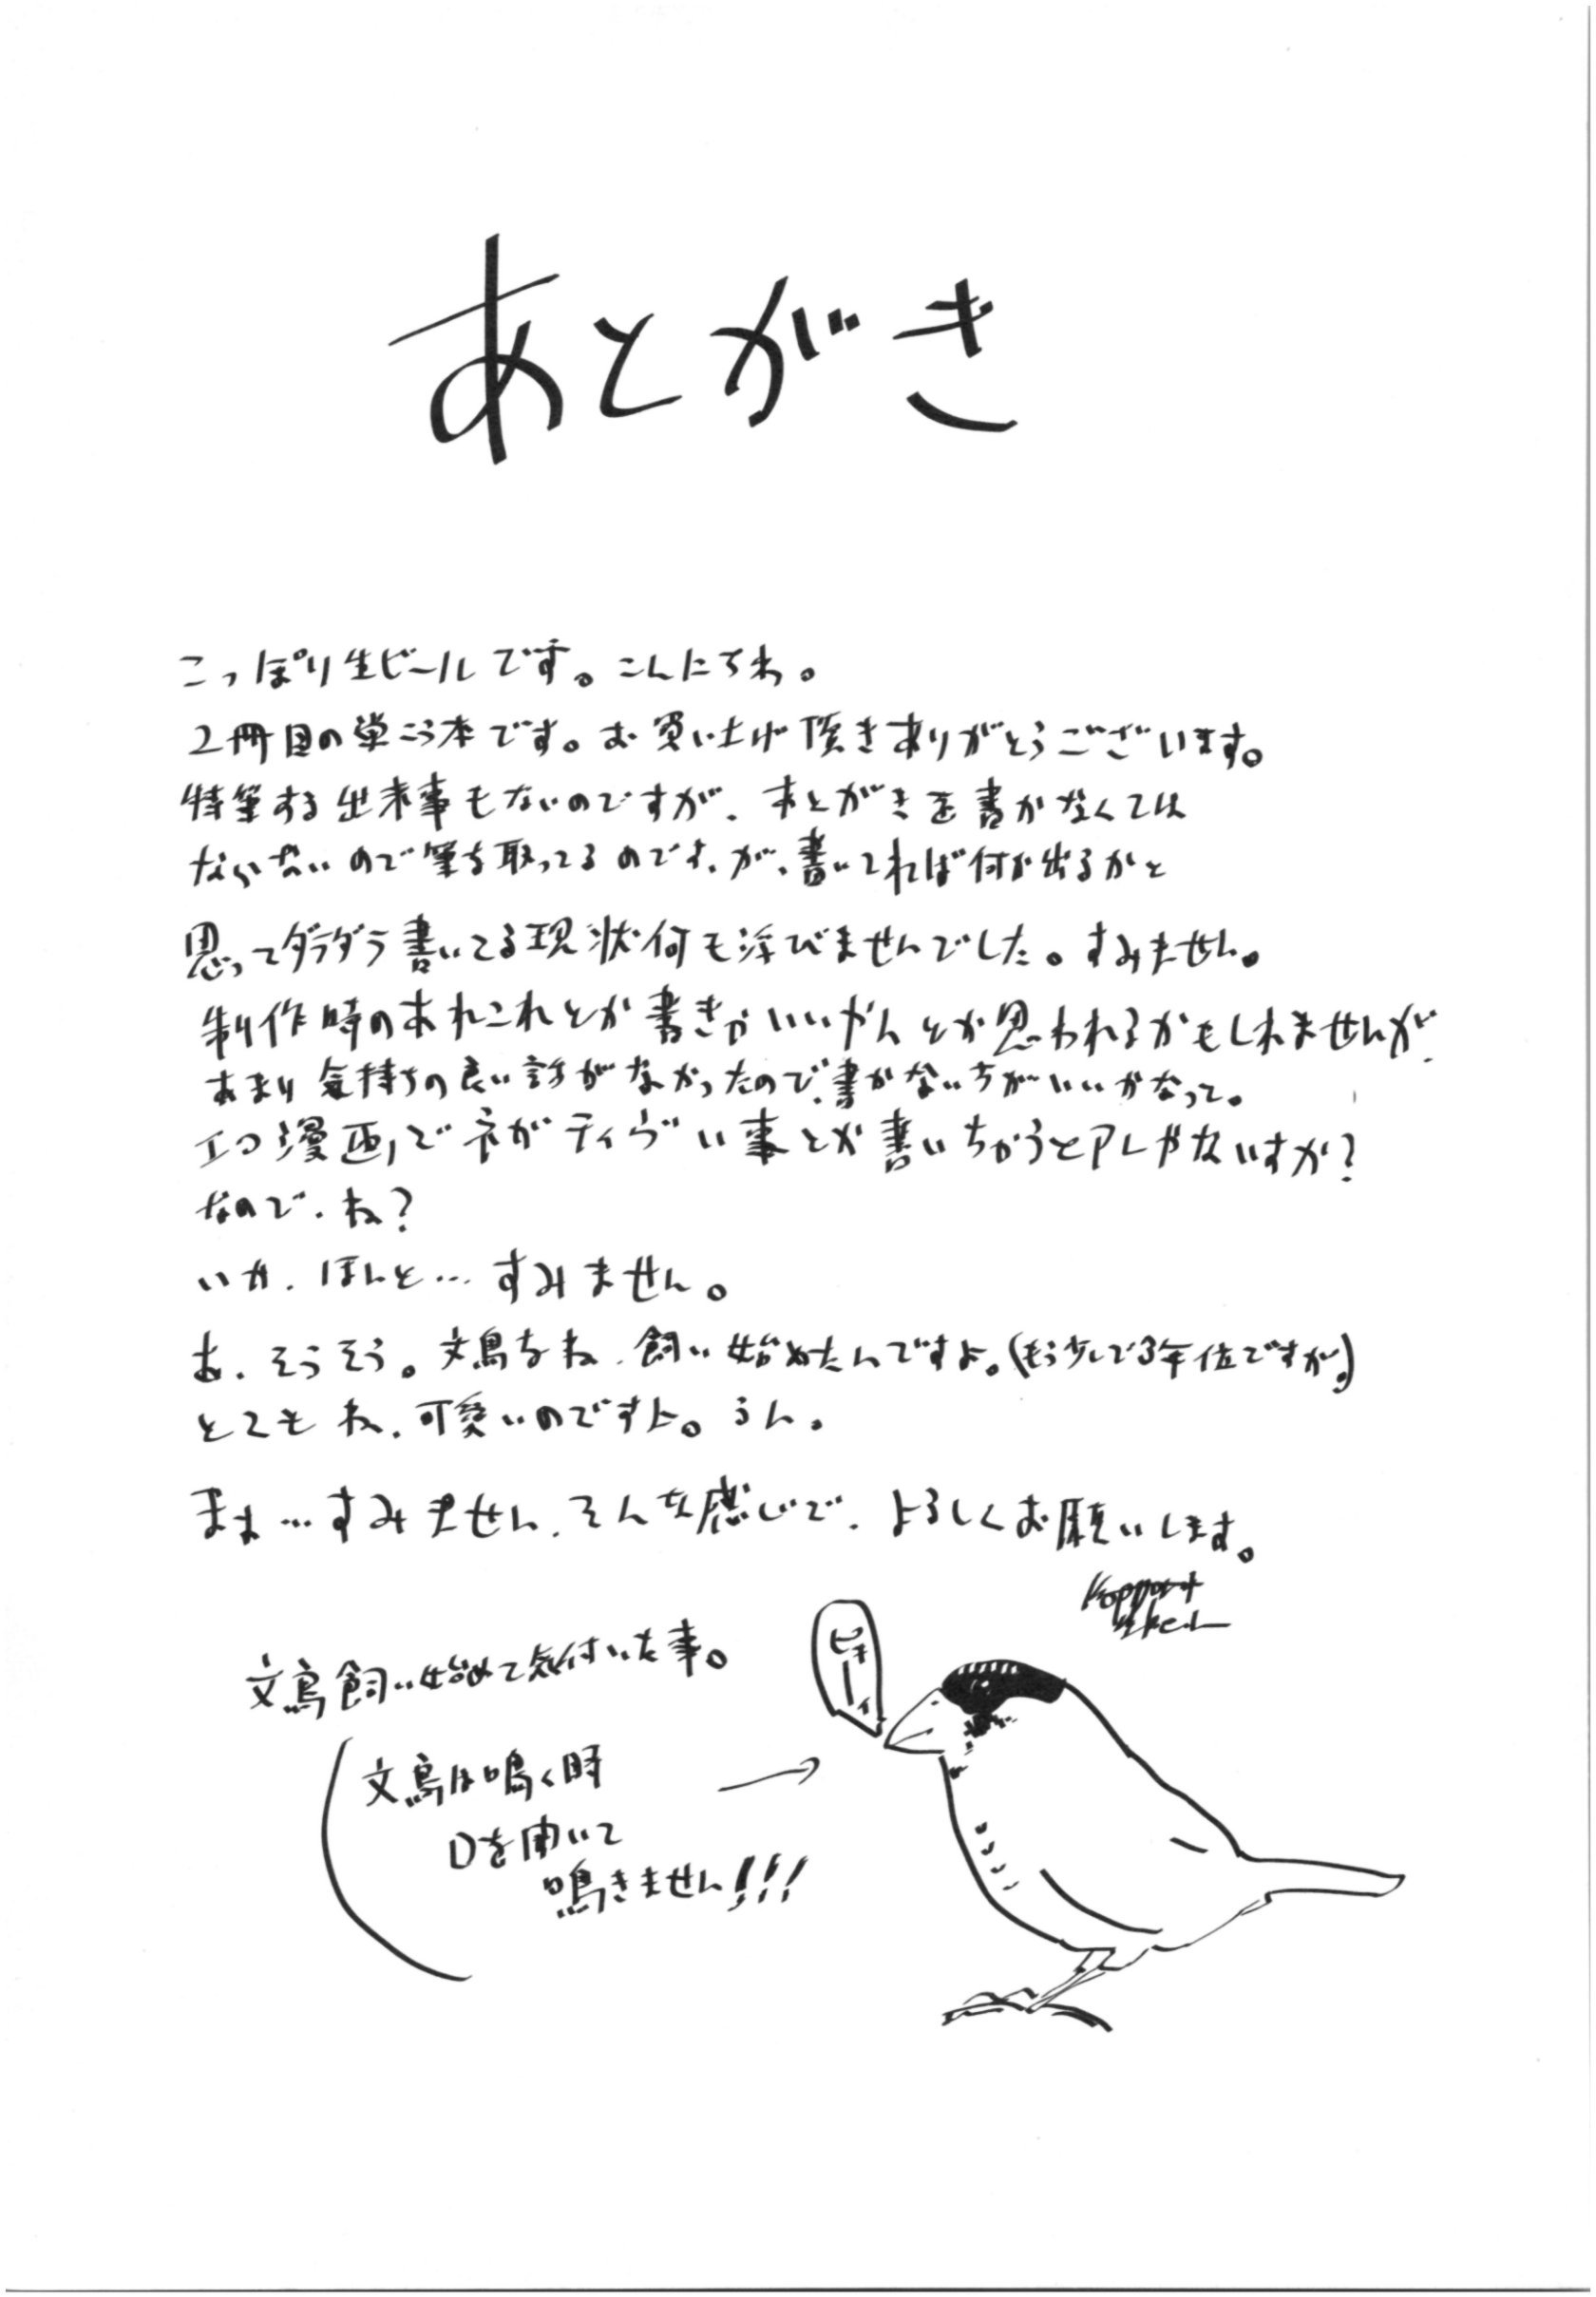 あとがき
こっぽり生ビールです。こんにちわ。
2冊目の単こう本です。お買い上げ頂きありがとうございます。
特筆する出来事もないのですが、あとがきを書かなくては
ならないので筆を取ってるのです、が、書いてれば何か出るかと
思ってダラダラ書いてる現状何も浮びませんでした。すみません。
制作時のあれこれとか書きゃいいやんとか思われるかもしれませんが、
あまり気持ちの良い話がなかったので、書かないちがいいかなって。
エロ漫画でネガティヴい事とか書いちゃうとアレやないすか?
なので、ね?
いや、ほんと…すみません。
あ、そうそう。文鳥をね、飼い始めたんですよ。(もう少しで3年位ですが。)
とてもね、可愛いのですよ。うん。
まぁ…すみません、そんな感じで、よろしくお願いします。
文鳥飼い始めて気付いた事。
ピキーィ
文鳥は鳴く時
口を開いて
鳴きません!!!